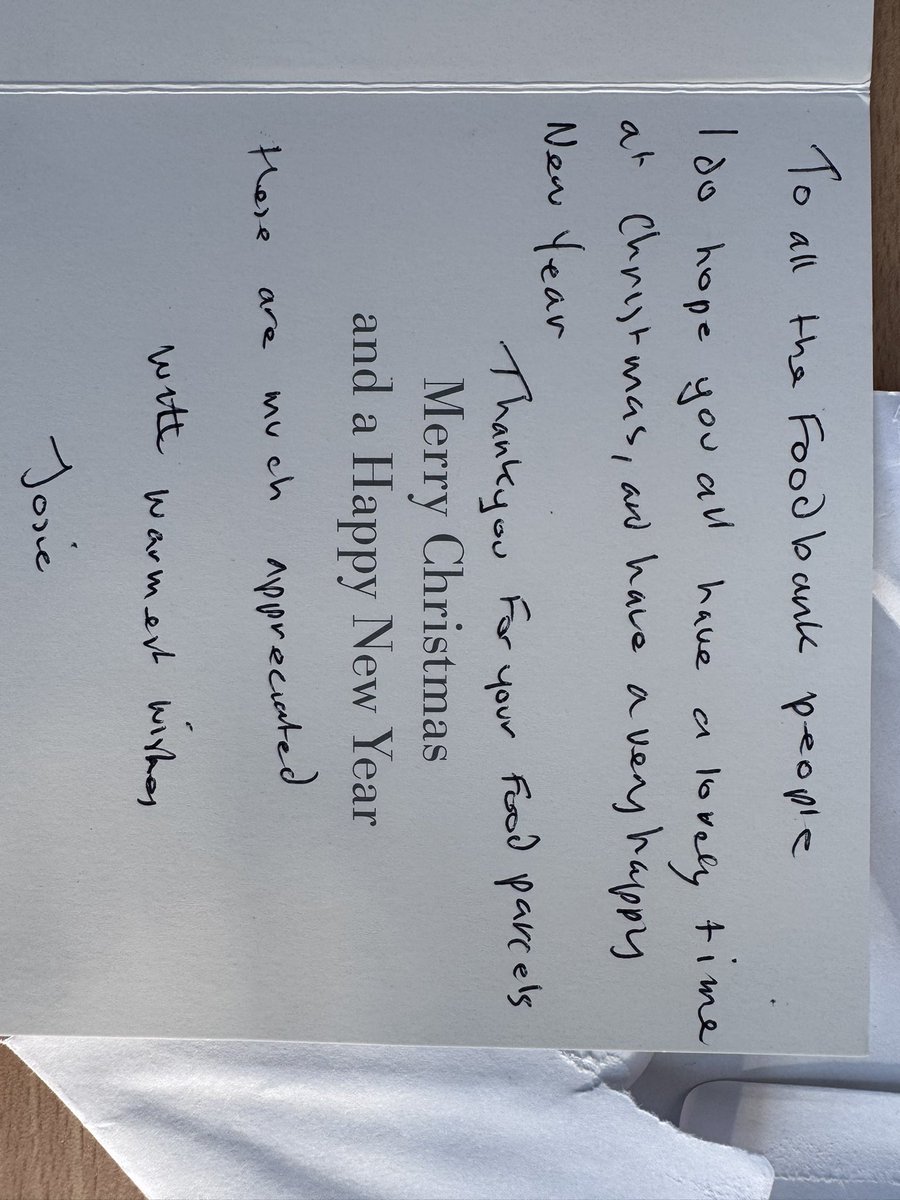 To all the Foodbank people
I do hope you all have a lovely time
at Christmas, and have a very happy
New Year
Thankyou For your Food parcels
Merry Christmas
and a Happy New Year
these are much appreciated
with warmest wishes
Josie